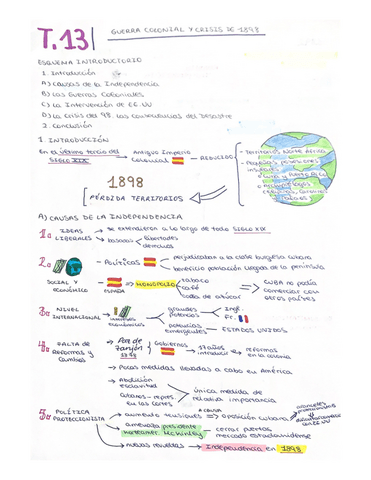 T.13
GUERRA COLONIAL Y CRISIS DE 1898
ESQUEMA INTRODUCTORIO
1. Introducción
A) Causas de la Independencia
B) Las Guerras Coloniales
C) La Intervención de EE.UU
D) La Crisis del 98. Las consecuencias del Desastre
2. Conclusión
1. INTRODUCCIÓN
En el último tercio del SIGLO XIX
Antiguo Imperio Colonial
REDUCIDO
- Territorios Norte África
- Pequeñas posesiones insulares
Cuba y Puerto Rico
1898
PÉRDIDA TERRITORIOS
A) CAUSAS DE LA INDEPENDENCIA
1º IDEAS LIBERALES
se extendieron a lo largo de todo SIGLO XIX
basado
libertades
2º
SOCIAL Y ECONÓMICO
- Políticas
perjudicaban a la clase burguesa cubana
beneficio población de la península
ESPAÑA
MONOPOLIO
tabaco
café
caña de azúcar
CUBA no podía comerciar con otros países
3º NIVEL INTERNACIONAL
intereses económicos
grandes potencias
Ing.
Fr.
potencias emergentes
ESTADOS UNIDOS
4º FALTA DE Reformas y Cambios
Paz de Zanjón
Gobiernos
introducir
reformas en la colonia
Pocas medidas llevadas a cabo en América
Abolición esclavitud
Cubanos - repres. en las Cortes
única medida de relativa importancia
5º POLÍTICA PROTECCIONISTA
aumento tensiones
oposición cubana
amenaza presidente norteamer. McKinley
cerrar puertas mercado estadounidense
nuevas revueltas
Independencia en 1898